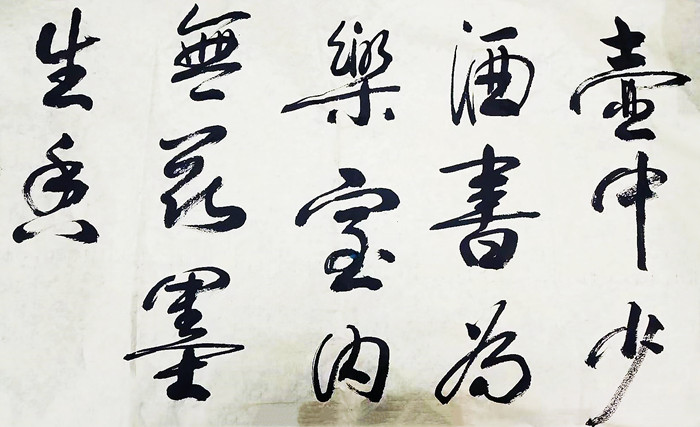 壺中少
酒書為
樂室内
無花墨
生香